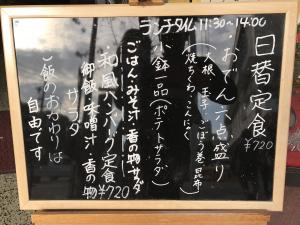 ランチタイム 11:30～14:00
日替定食
¥720
・おでん六点盛り
(大根 玉子 ごぼう巻 昆布
焼ちくわ こんにゃく)
・小鉢一品(ポテトサラダ)
ごはん・みそ汁・香の物サラダ
和風ハンバーグ定食 ¥720
サラダ
御飯 味噌汁 香の物
ご飯のおかわりは
自由です